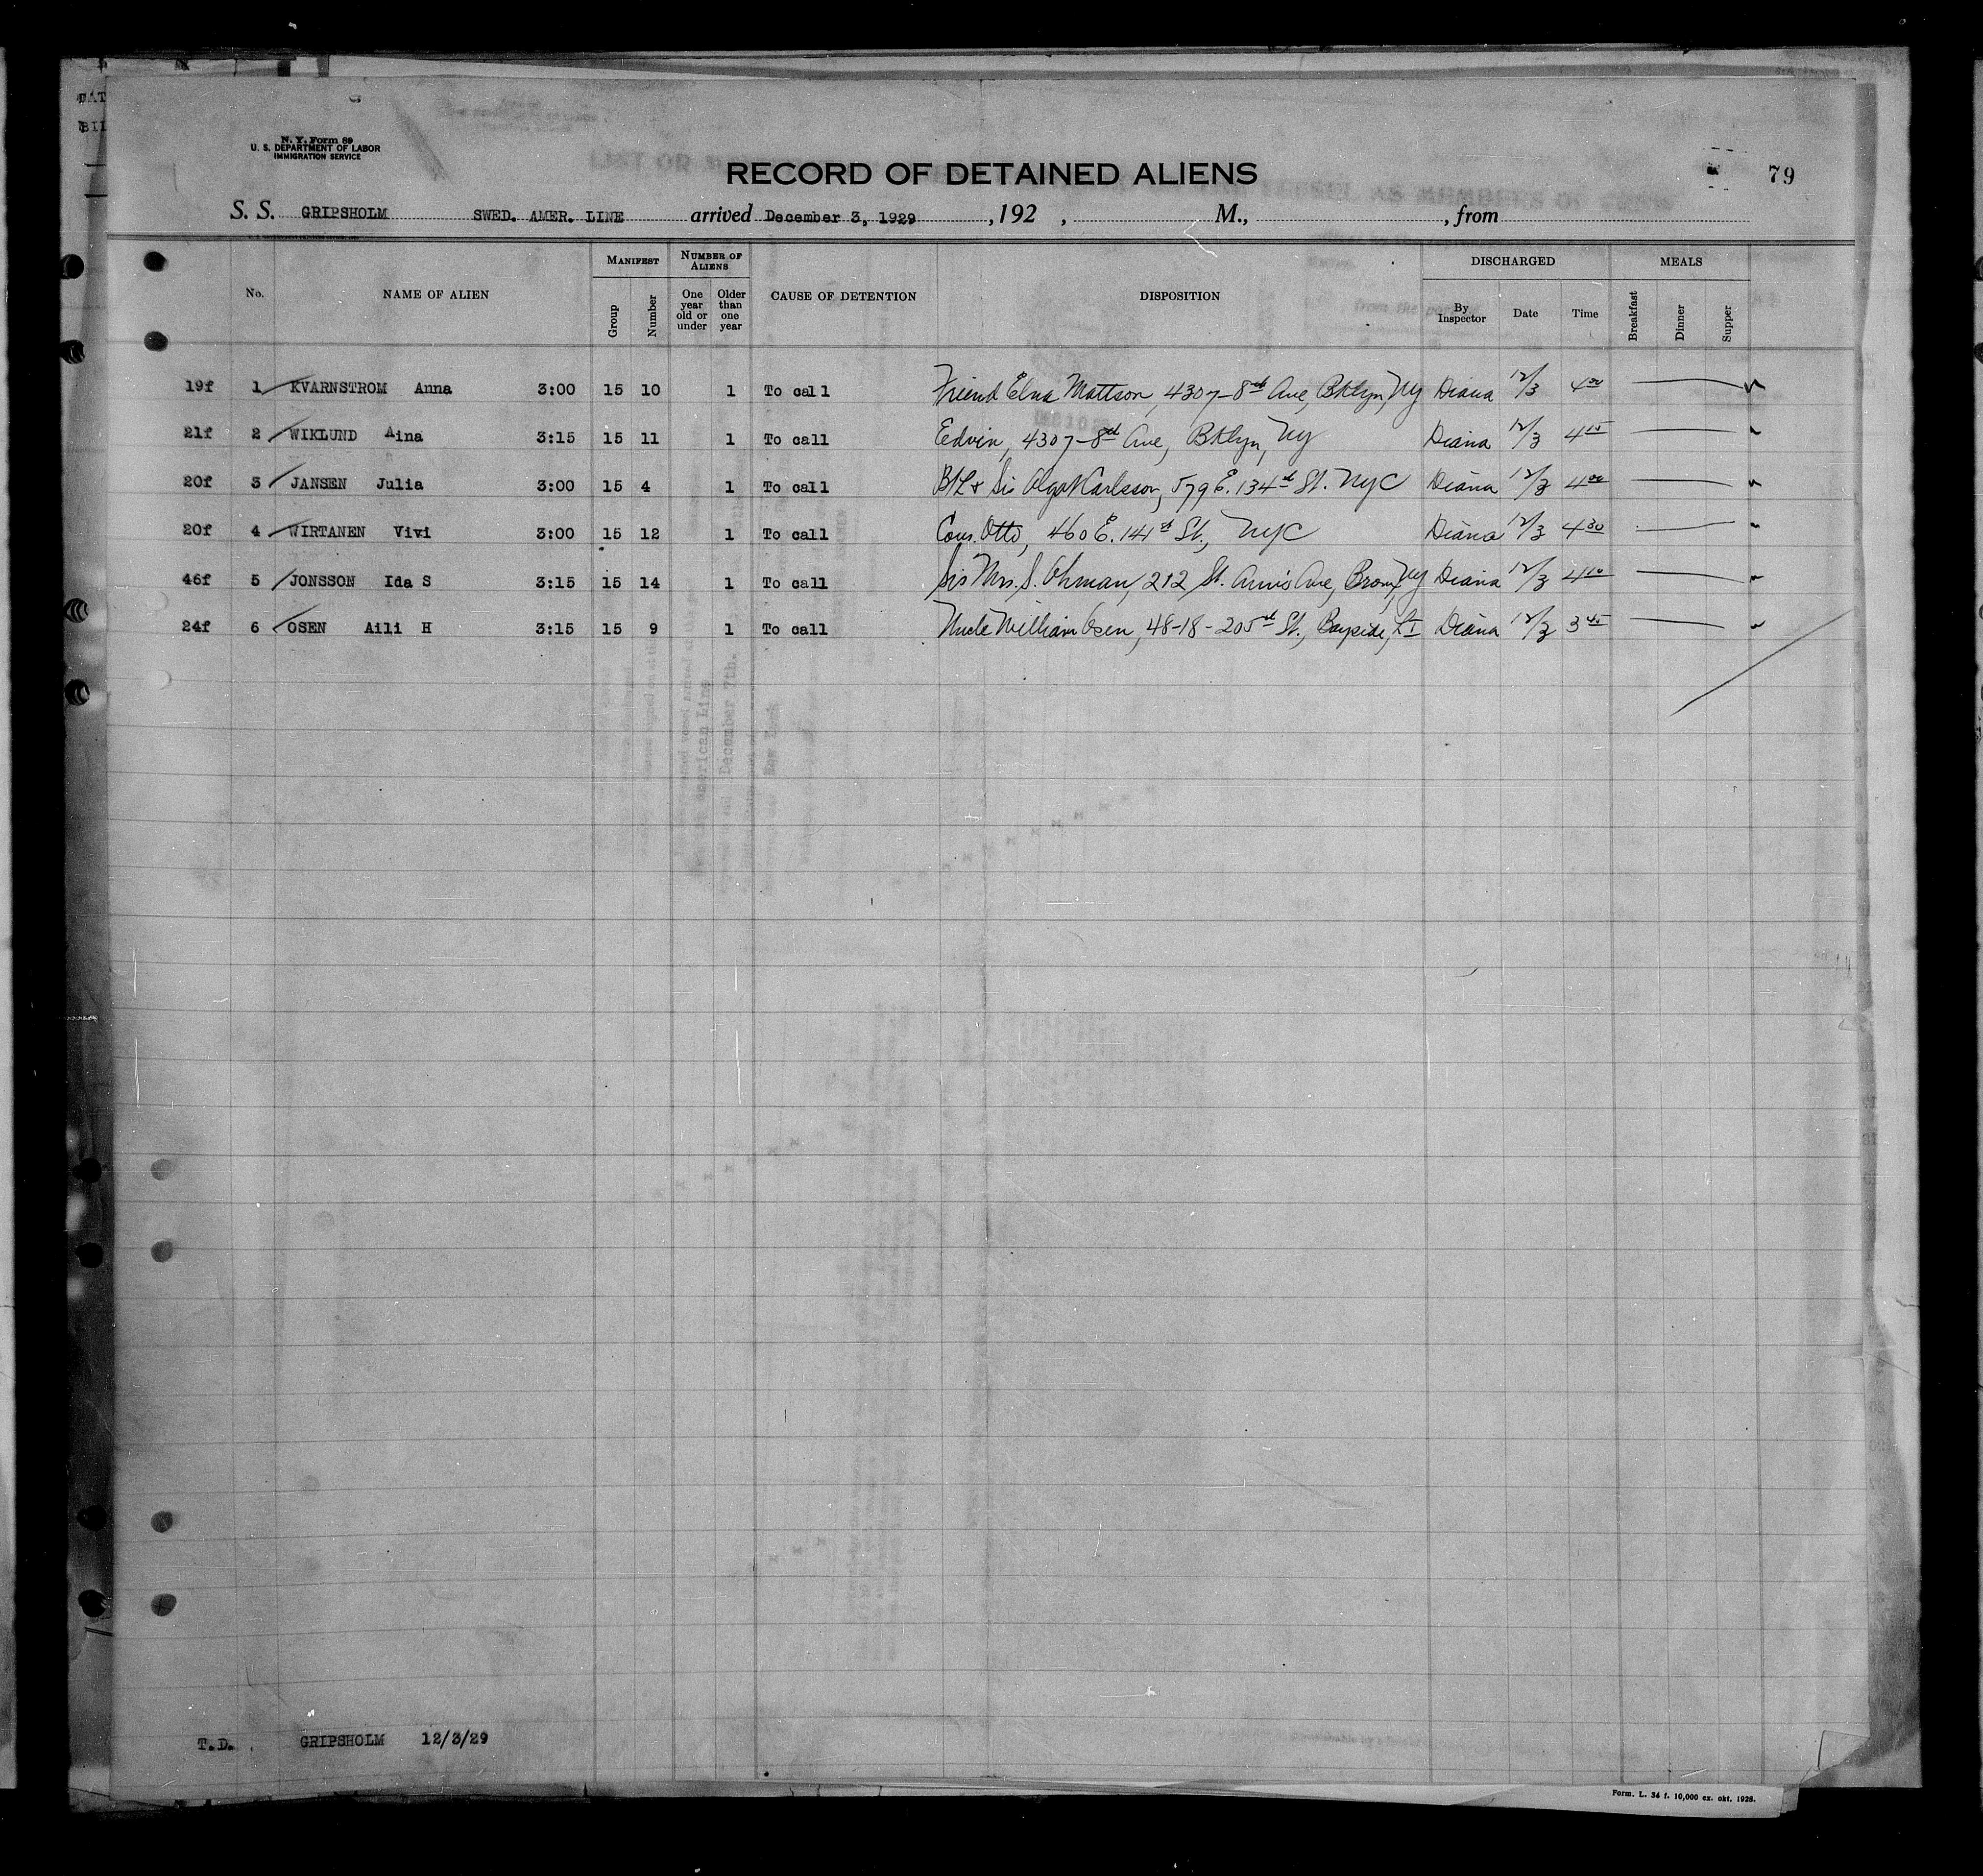 N. Y. Form 89
U. S. DEPARTMENT OF LABOR
IMMIGRATION SERVICE
RECORD OF DETAINED ALIENS
79
S. S. GRIPSHOLM SWED. AMER. LINE arrived December 3, 1929, 192 , M., , from
No. NAME OF ALIEN MANIFEST Group Number NUMBER OF ALIENS One year old or under Older than one year CAUSE OF DETENTION DISPOSITION DISCHARGED By Inspector Date Time MEALS Breakfast Dinner Supper
19f 1 KVARNSTROM Anna 3:00 15 10 1 To call Friend Elna Mattson, 4307-8th Ave, Bklyn, NY Diana 12/3 4 00
21f 2 WIKLUND Aina 3:15 15 11 1 To call Edvin, 4307-8th Ave, Bklyn, NY Diana 12/3 4 15
20f 3 JANSEN Julia 3:00 15 4 1 To call B/L & Sis Olga Karlsson, 579 E. 134th St. NYC Diana 12/3 4 00
20f 4 WIRTANEN Vivi 3:00 15 12 1 To call Cous. Otto, 460 E. 141st St., NYC Diana 12/3 4 30
46f 5 JONSSON Ida S 3:15 15 14 1 To call Sis Mrs. S. Ohman, 212 St. Ann's Ave, Bronx, NY Diana 12/3 4 10
24f 6 OSEN Aili H 3:15 15 9 1 To call Uncle William Osen, 48-18-205th St., Bayside, LI Diana 12/3 3 45
T.D. GRIPSHOLM 12/3/29
Form. L. 34 f. 10,000 ex. okt. 1928.